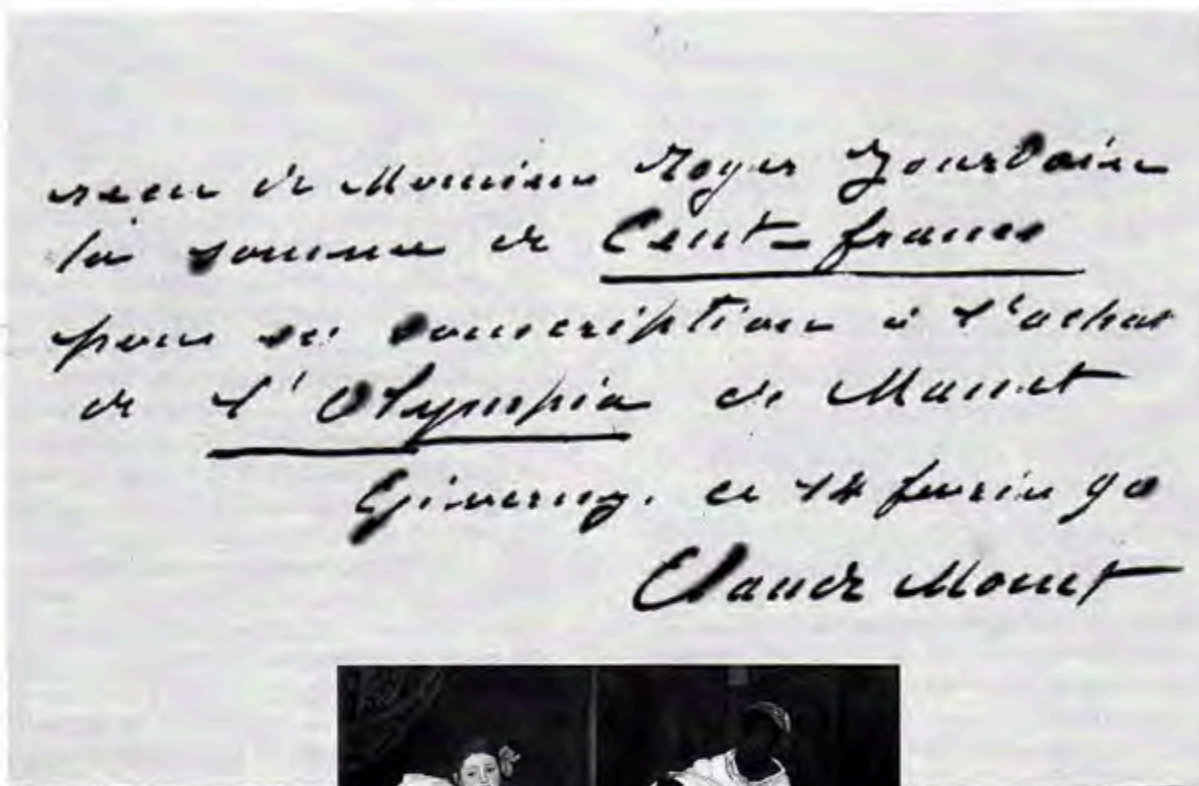 recu de Monsieur Roger Jourdain
la somme de Cent-francs
pour sa souscription à l'achat
de l'Olympia de Manet
Giverny. ce 14 fevrier 90
Claude Monet